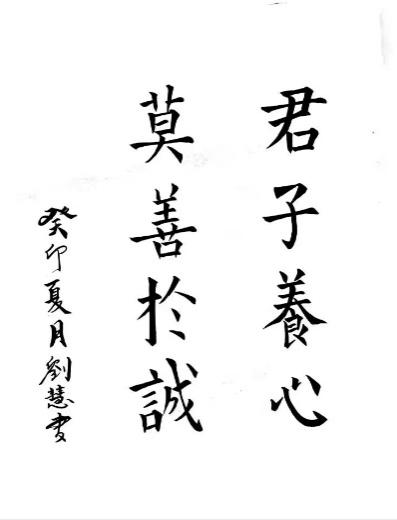 君子養心
莫善於誠
癸卯夏月劉慧書